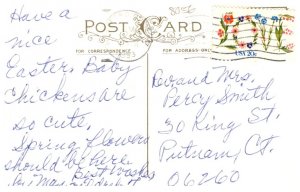 Have a
nice
Easter. Baby
Chickens are
so cute.
Spring flowers
should be here.
Best Wishes
POST CARD
FOR CORRESPONDENCE
FOR ADDRESS ONLY
USA 20c
Rev and Mrs.
Percy Smith
30 King St.
Putnam, Ct.
06260